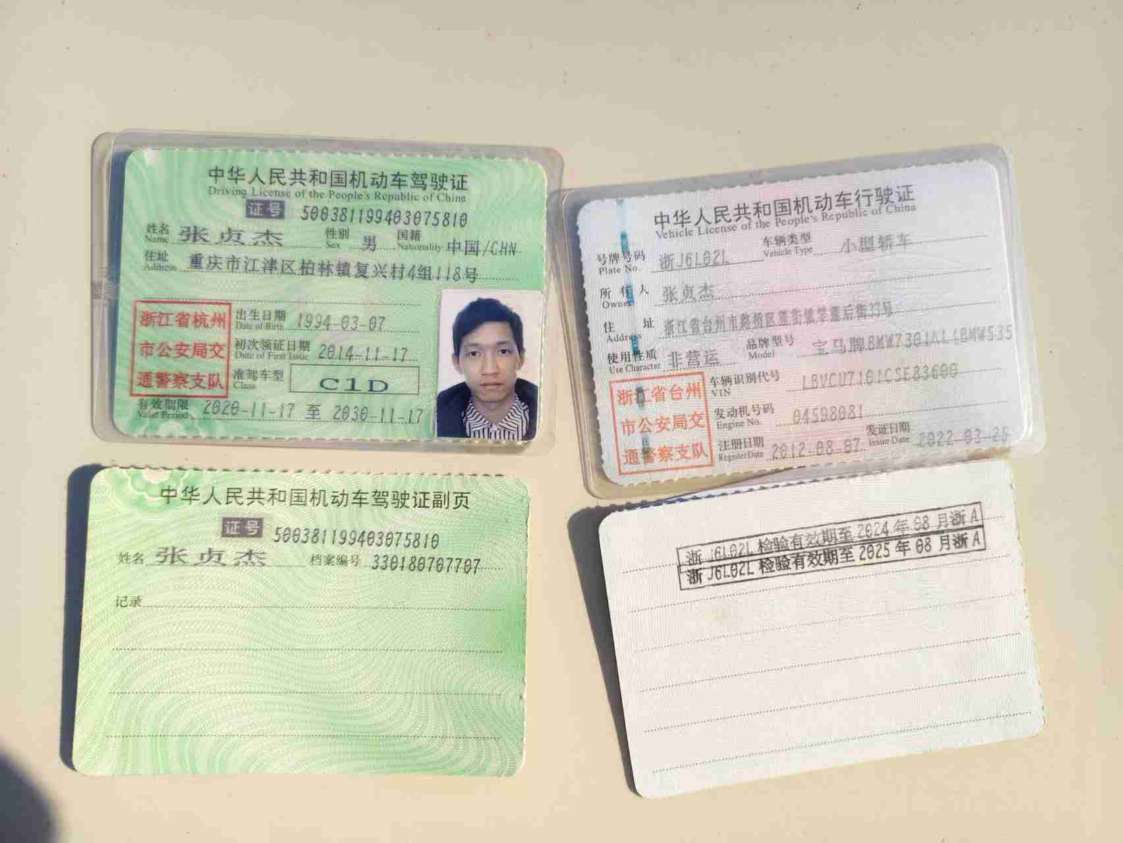 中华人民共和国机动车驾驶证
Driving License of the People's Republic of China
证号 500381199403075810
姓名 张贞杰 性别 男 国籍 中国/CHN
Name Sex Nationality
住址 重庆市江津区柏林镇复兴村4组118号
Address
浙江省杭州
市公安局交
通警察支队
出生日期 1994-03-07
Date of Birth
初次领证日期 2014-11-17
Date of First Issue
准驾车型 C1D
Class
有效期限 2020-11-17 至 2030-11-17
Valid Period
中华人民共和国机动车行驶证
Vehicle License of the People's Republic of China
号牌号码 浙J6L02L 车辆类型 小型轿车
Plate No. Vehicle Type
所有人 张贞杰
Owner
住址 浙江省台州市路桥区蓬街镇学堂后街33号
Address
使用性质 非营运 品牌型号
Use Character Model
浙江省台州
市公安局交
通警察支队
车辆识别代号
VIN
发动机号码 04598081
Engine No.
注册日期 2012-08-07 发证日期
Register Date Issue Date
中华人民共和国机动车驾驶证副页
证号 500381199403075810
姓名 张贞杰 档案编号 330180707707
记录
浙J6L02L 检验有效期至 2024 年 08 月 浙A
浙J6L02L 检验有效期至 2025 年 08 月 浙A